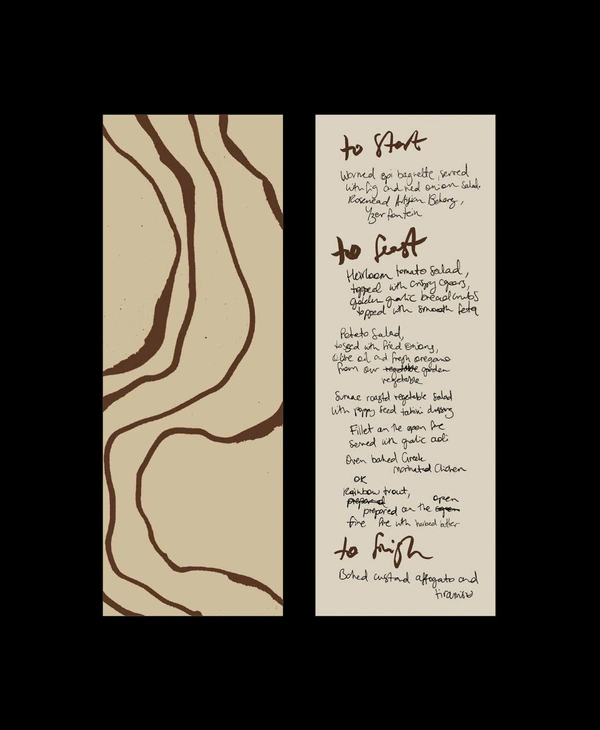 to Start
Warmed epi baguette, served
with fig and red onion salad.
Rosemead Artisan Bakery,
Yzerfontein
to feast
Heirloom tomato salad,
topped with crispy capers,
golden garlic breadcrumbs
topped with smooth feta
Potato Salad,
tossed with fried onions,
olive oil and fresh oregano
from our garden
vegetable
Sumac roasted vegetable salad
with poppy seed tahini dressing
Fillet on the open fire
served with garlic aoli
Oven baked Greek
marinated Chicken
OR
Rainbow trout,
prepared open
prepared on the open
fire fire with herbed butter
to finish
Baked custard affogato and
tiramisu